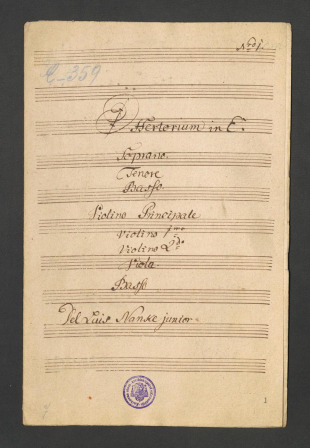 Nro 1.
C-359
Offertorium in C.
Soprano.
Tenore
Basso.
Violino Principale
Violino 1mo
Violino 2do
Viola.
Basso
Del Luis Nanke junior.
7
1